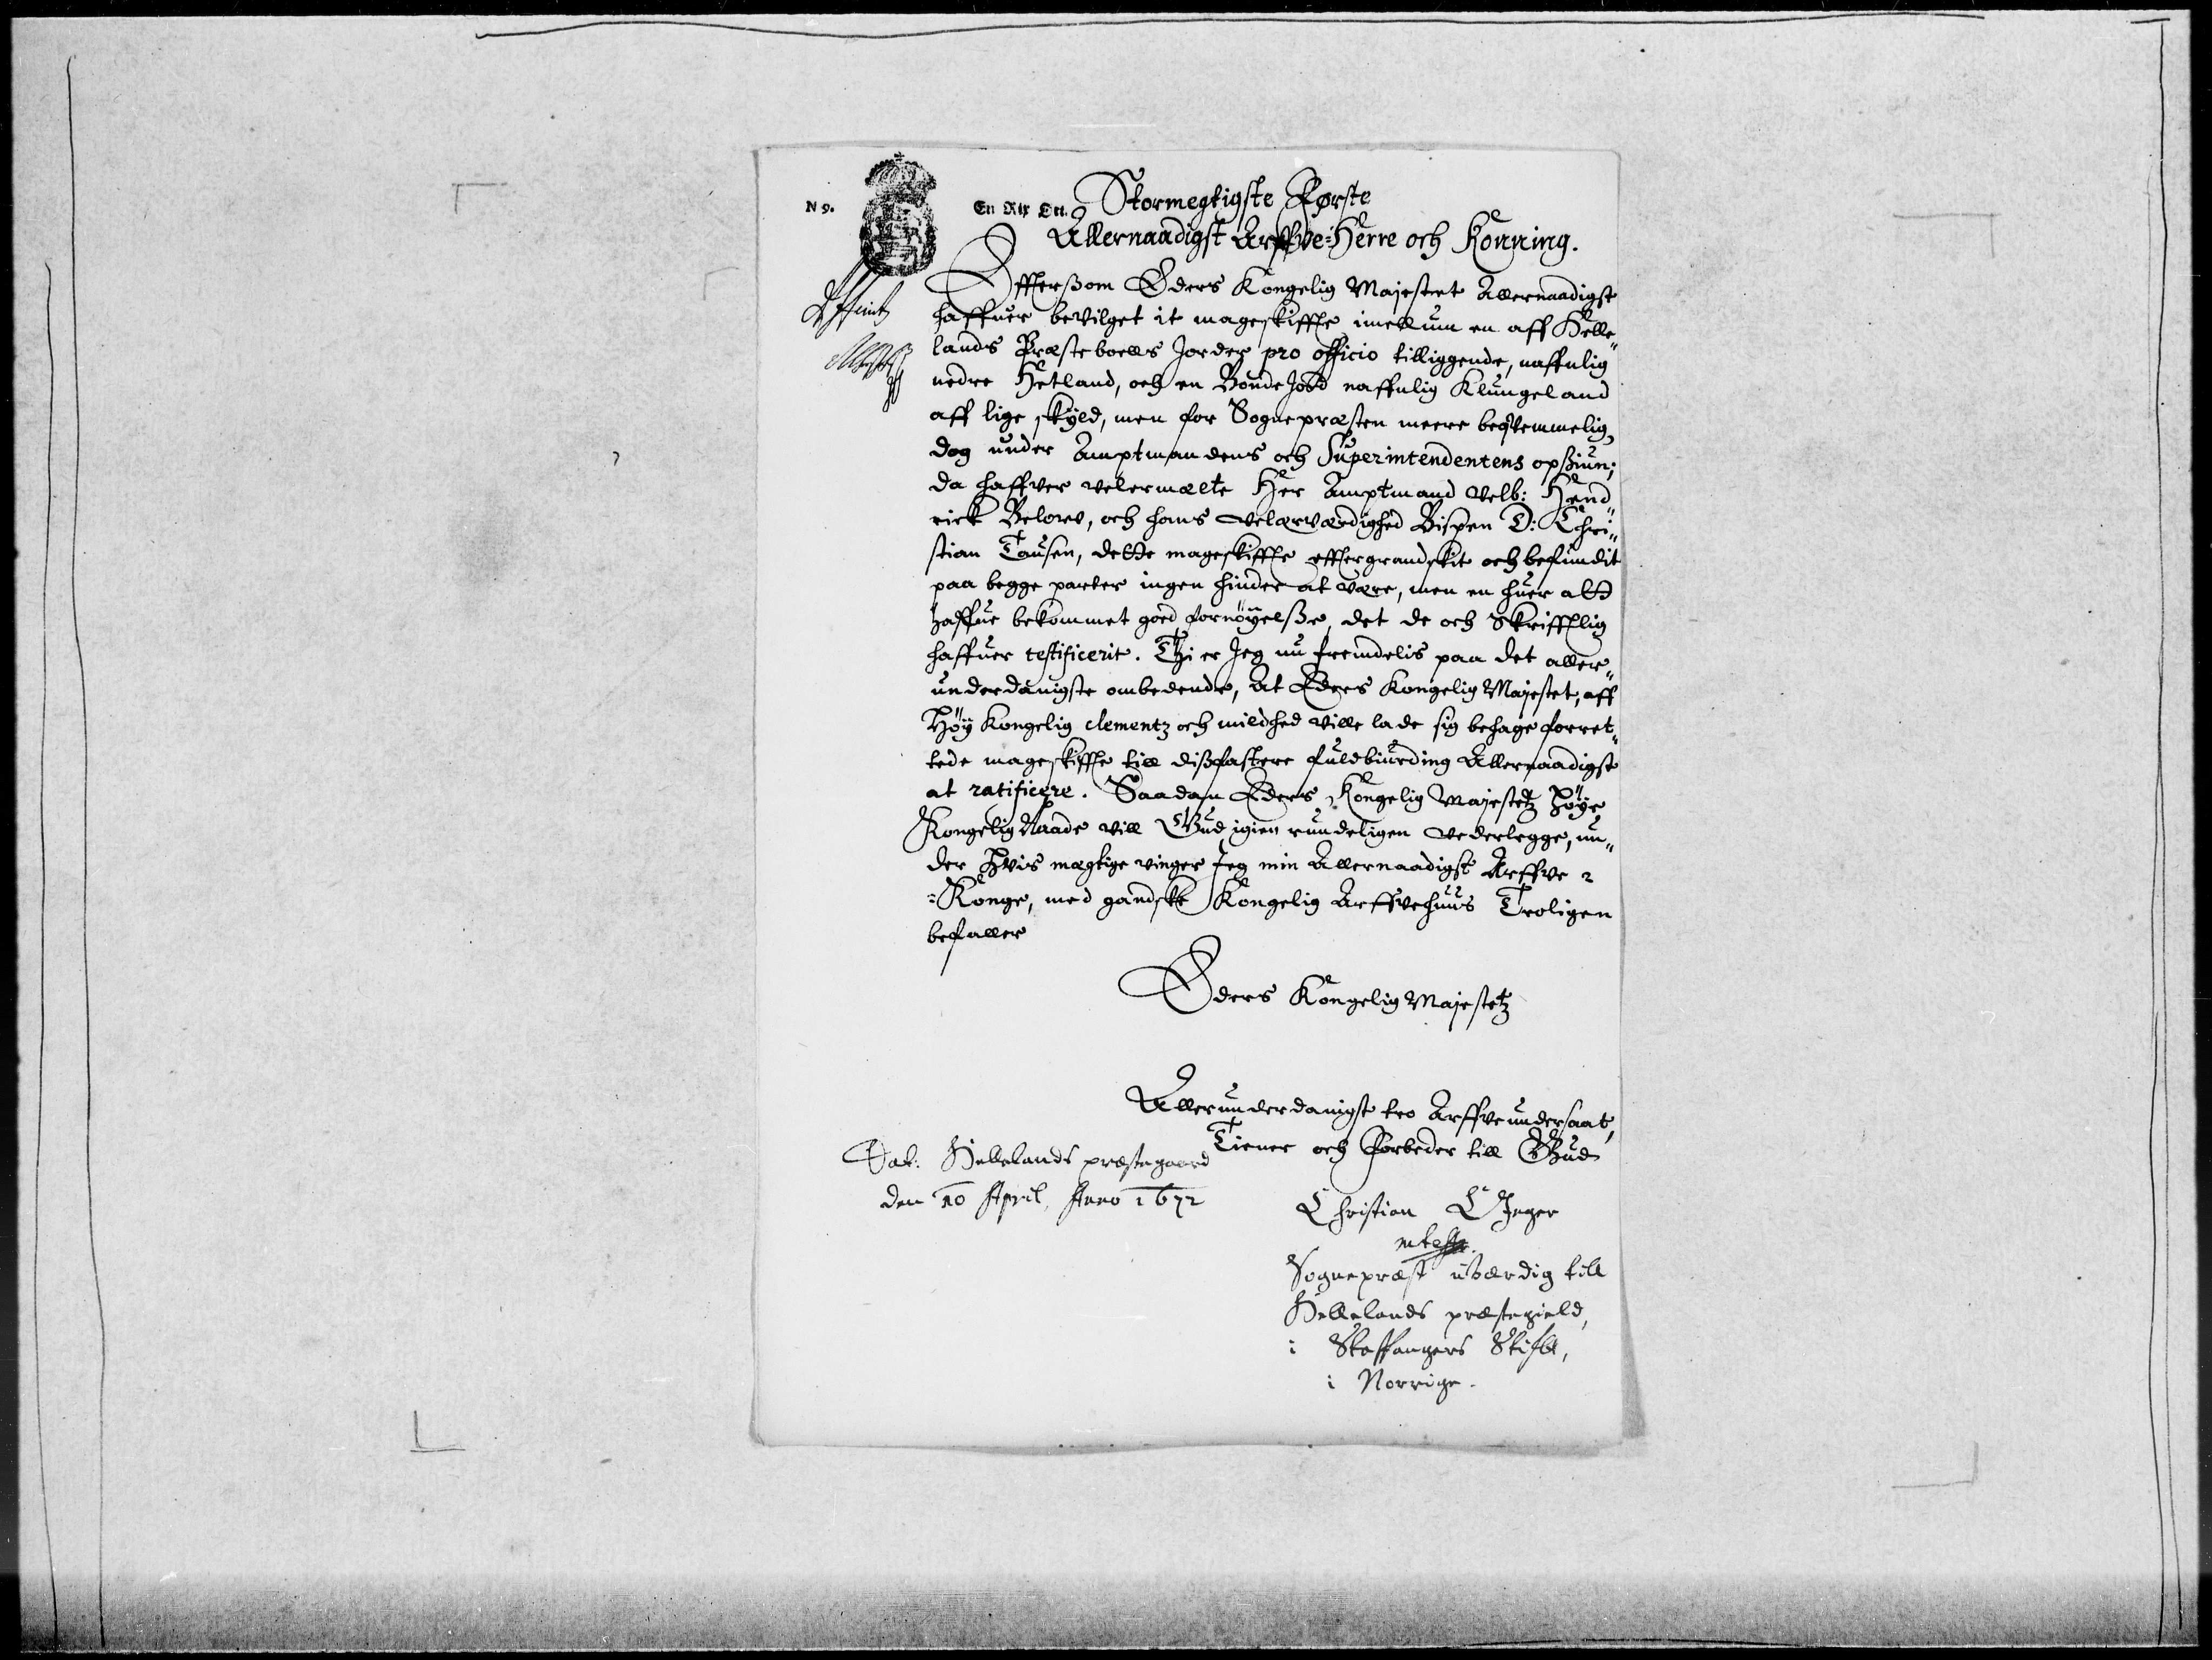 N 9.
En Rix Ort.
Stormegtigste Første
Allernaadigst Arffve-Herre och Konning.
Effterssom Eders Kongelig Majestet Allernaadigst
haffuer bevilget it mageskiffte imellum en aff Helle„
lands Præsteboells Jorder pro officio tilliggende, naffnlig
nedre Hetland, och en Bonde Jord naffnlig Klungeland
aff lige skyld, men for Sognepræsten meere beqvemmelig,
dog under Amptmandens och Superintendentens opssiun;
da haffver velermælte Her Amptmand Velb: Hend„
rick Below, och hans velærværdighed Bispen D: Chri„
stian Tausen, dette mageskiffte efftergrandskit och befundit
paa begge parter ingen hinder at være, men en huer att
haffue bekommet goed fornöyelsse, det de och Skrifftlig
haffuer testificerit. Thi er Jeg nu fremdelis paa det aller„
underdanigste ombedende, At Eders Kongelig Majestet, aff
Høy Kongelig clementz och mildhed ville lade sig behage forret„
tede mageskiffte till dissfastere fuldbiurding Allernaadigst
at ratificere. Saadan Eders Kongelig Majestetz Höye
Kongelig Naade vill Gud igien rundeligen vederlegge, un„
der Hvis mægtige vinger Jeg min Allernaadigst Arffve
Konge, med gandske Kongelig Arffvehuus Troligen
befaller
Eders Kongelig Majestetz
Allerunderdanigst tro Arffveundersaat,
Tiener och Forbeder till Gud
Dat: Hellelands præstegaard
den 10 April, Anno 1672
Christian
Sognepræst uværdig till
Hellelands præstegield,
i Staffangers Stift,
i Norrige.